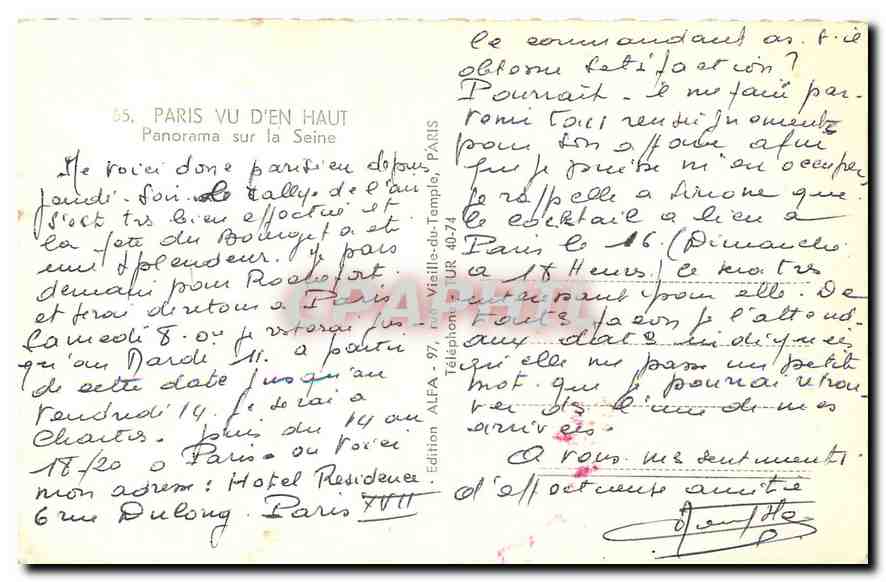 65. PARIS VU D'EN HAUT
Panorama sur la Seine
Me voici donc parisien depuis
jeudi. Soir le rallye de l'air
s'est trs bien effectué et
la fete du Bourget a été
une splendeur. Je pars
demain pour Rochefort.
et serai de retour a Paris
Samedi 8. ou je resterai jus-
qu'au Mardi 11. a partir
de cette date jusqu'au
Vendredi 14. Je serai a
Chartres. puis du 14 au
18/20 a Paris. ou voici
mon adresse: Hotel Residence
6 rue Dulong. Paris XVII
Edition ALFA - 97, rue Vieille-du-Temple, PARIS
Téléphone TUR 40-74
le commandant as-t-il
obtenu satisfaction?
Pourrait-il me faire par-
venir tous renseignements
pour son affaire afin
que je puisse m'en occuper.
Je rappelle a Simone que
le cocktail a lieu a
Paris le 16. (Dimanche
a 18 Heures) ce sera tres
interessant pour elle. De
toutes façon je l'attend
aux dates indiquées
qu'elle me passe un petit
mot que je pourrai retrou-
ver dès l'une de mes
arrivées.
A vous mes sentiments
d'affectueuse amitié
CPARAMA